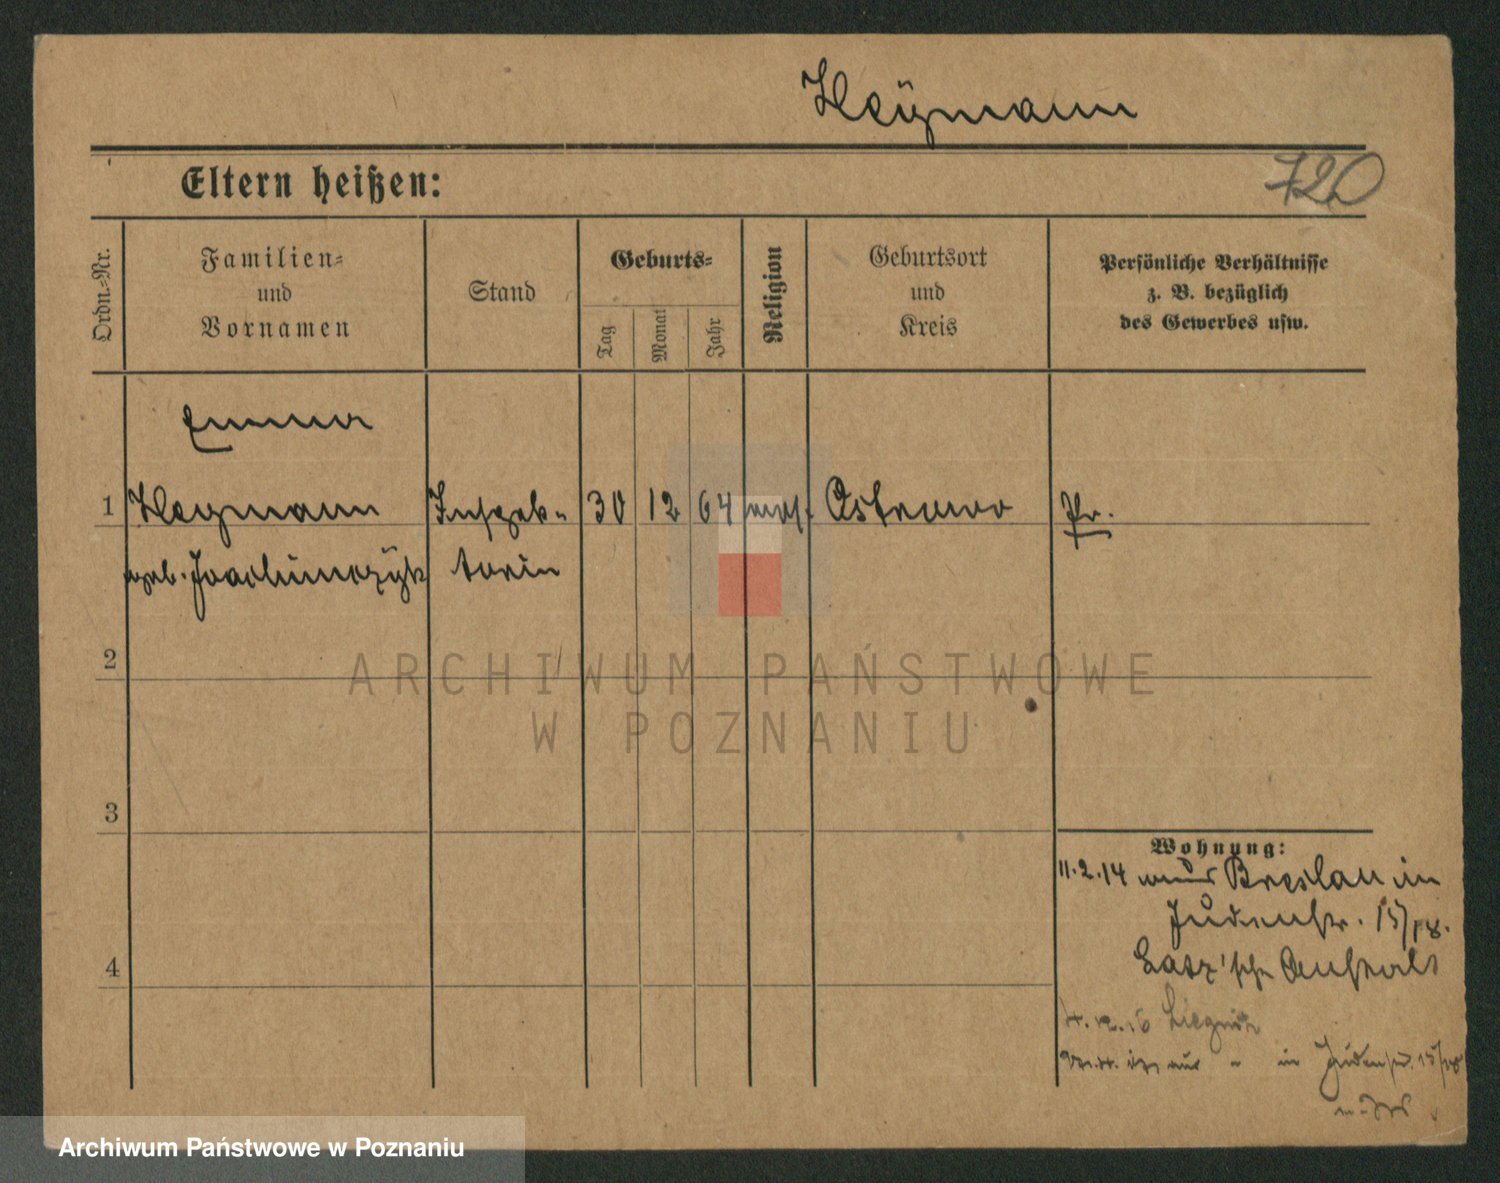 Heÿmann
720
Eltern heißen:
Ordn.-Nr.
Familien-
und
Vornamen
Stand
Geburts-
Tag
Monat
Jahr
Religion
Geburtsort
und
Kreis
Persönliche Verhältnisse
z. B. bezüglich
des Gewerbes usw.
Emma
1 Heymann Inspek- 30 12 64 mos. Ostrowo Pr.
geb. Joachimczÿk torin
2
3
4
Wohnung:
11.2.14 aus Breslau in
Judenstr. 15/18.
Latz'sche Anstalt
Liegnitz
aus " in Judenstr. 15/18
ARCHIWUM PAŃSTWOWE
W POZNANIU
Archiwum Państwowe w Poznaniu